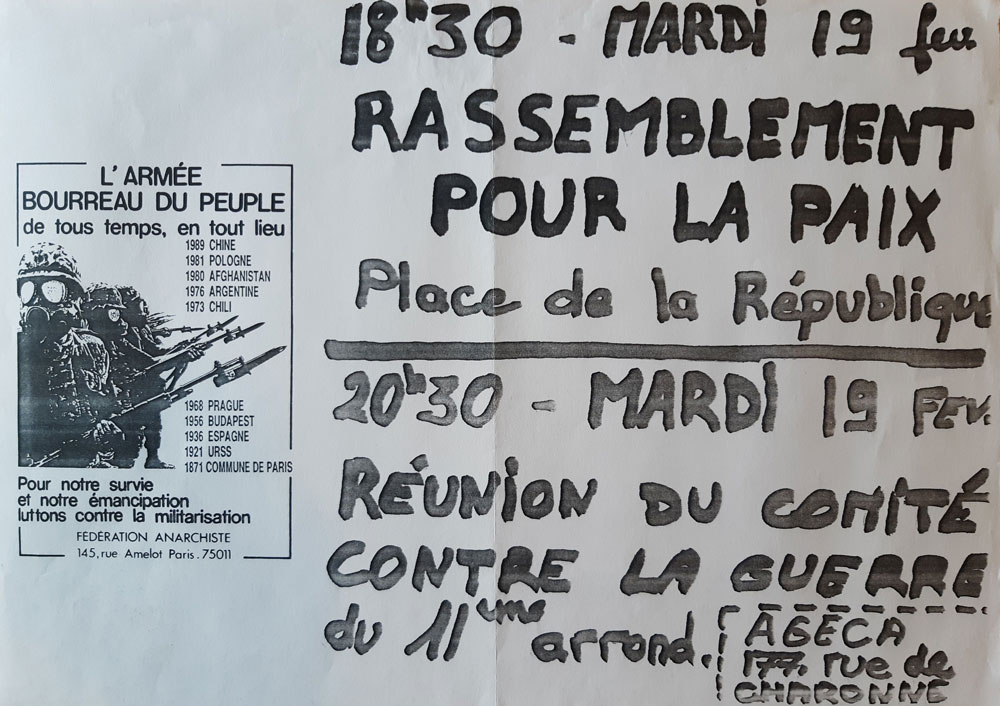 L'ARMÉE
BOURREAU DU PEUPLE
de tous temps, en tout lieu
1989 CHINE
1981 POLOGNE
1980 AFGHANISTAN
1976 ARGENTINE
1973 CHILI
1968 PRAGUE
1956 BUDAPEST
1936 ESPAGNE
1921 URSS
1871 COMMUNE DE PARIS
Pour notre survie
et notre émancipation
luttons contre la militarisation
FEDÉRATION ANARCHISTE
145, rue Amelot Paris. 75011
18h30 - MARDI 19 fev
RASSEMBLEMENT
POUR LA PAIX
Place de la République
20h30 - MARDI 19 FEV.
RÉUNION DU COMITÉ
CONTRE LA GUERRE
du 11ème arrond.
AGECA
177. rue de
CHARONNE